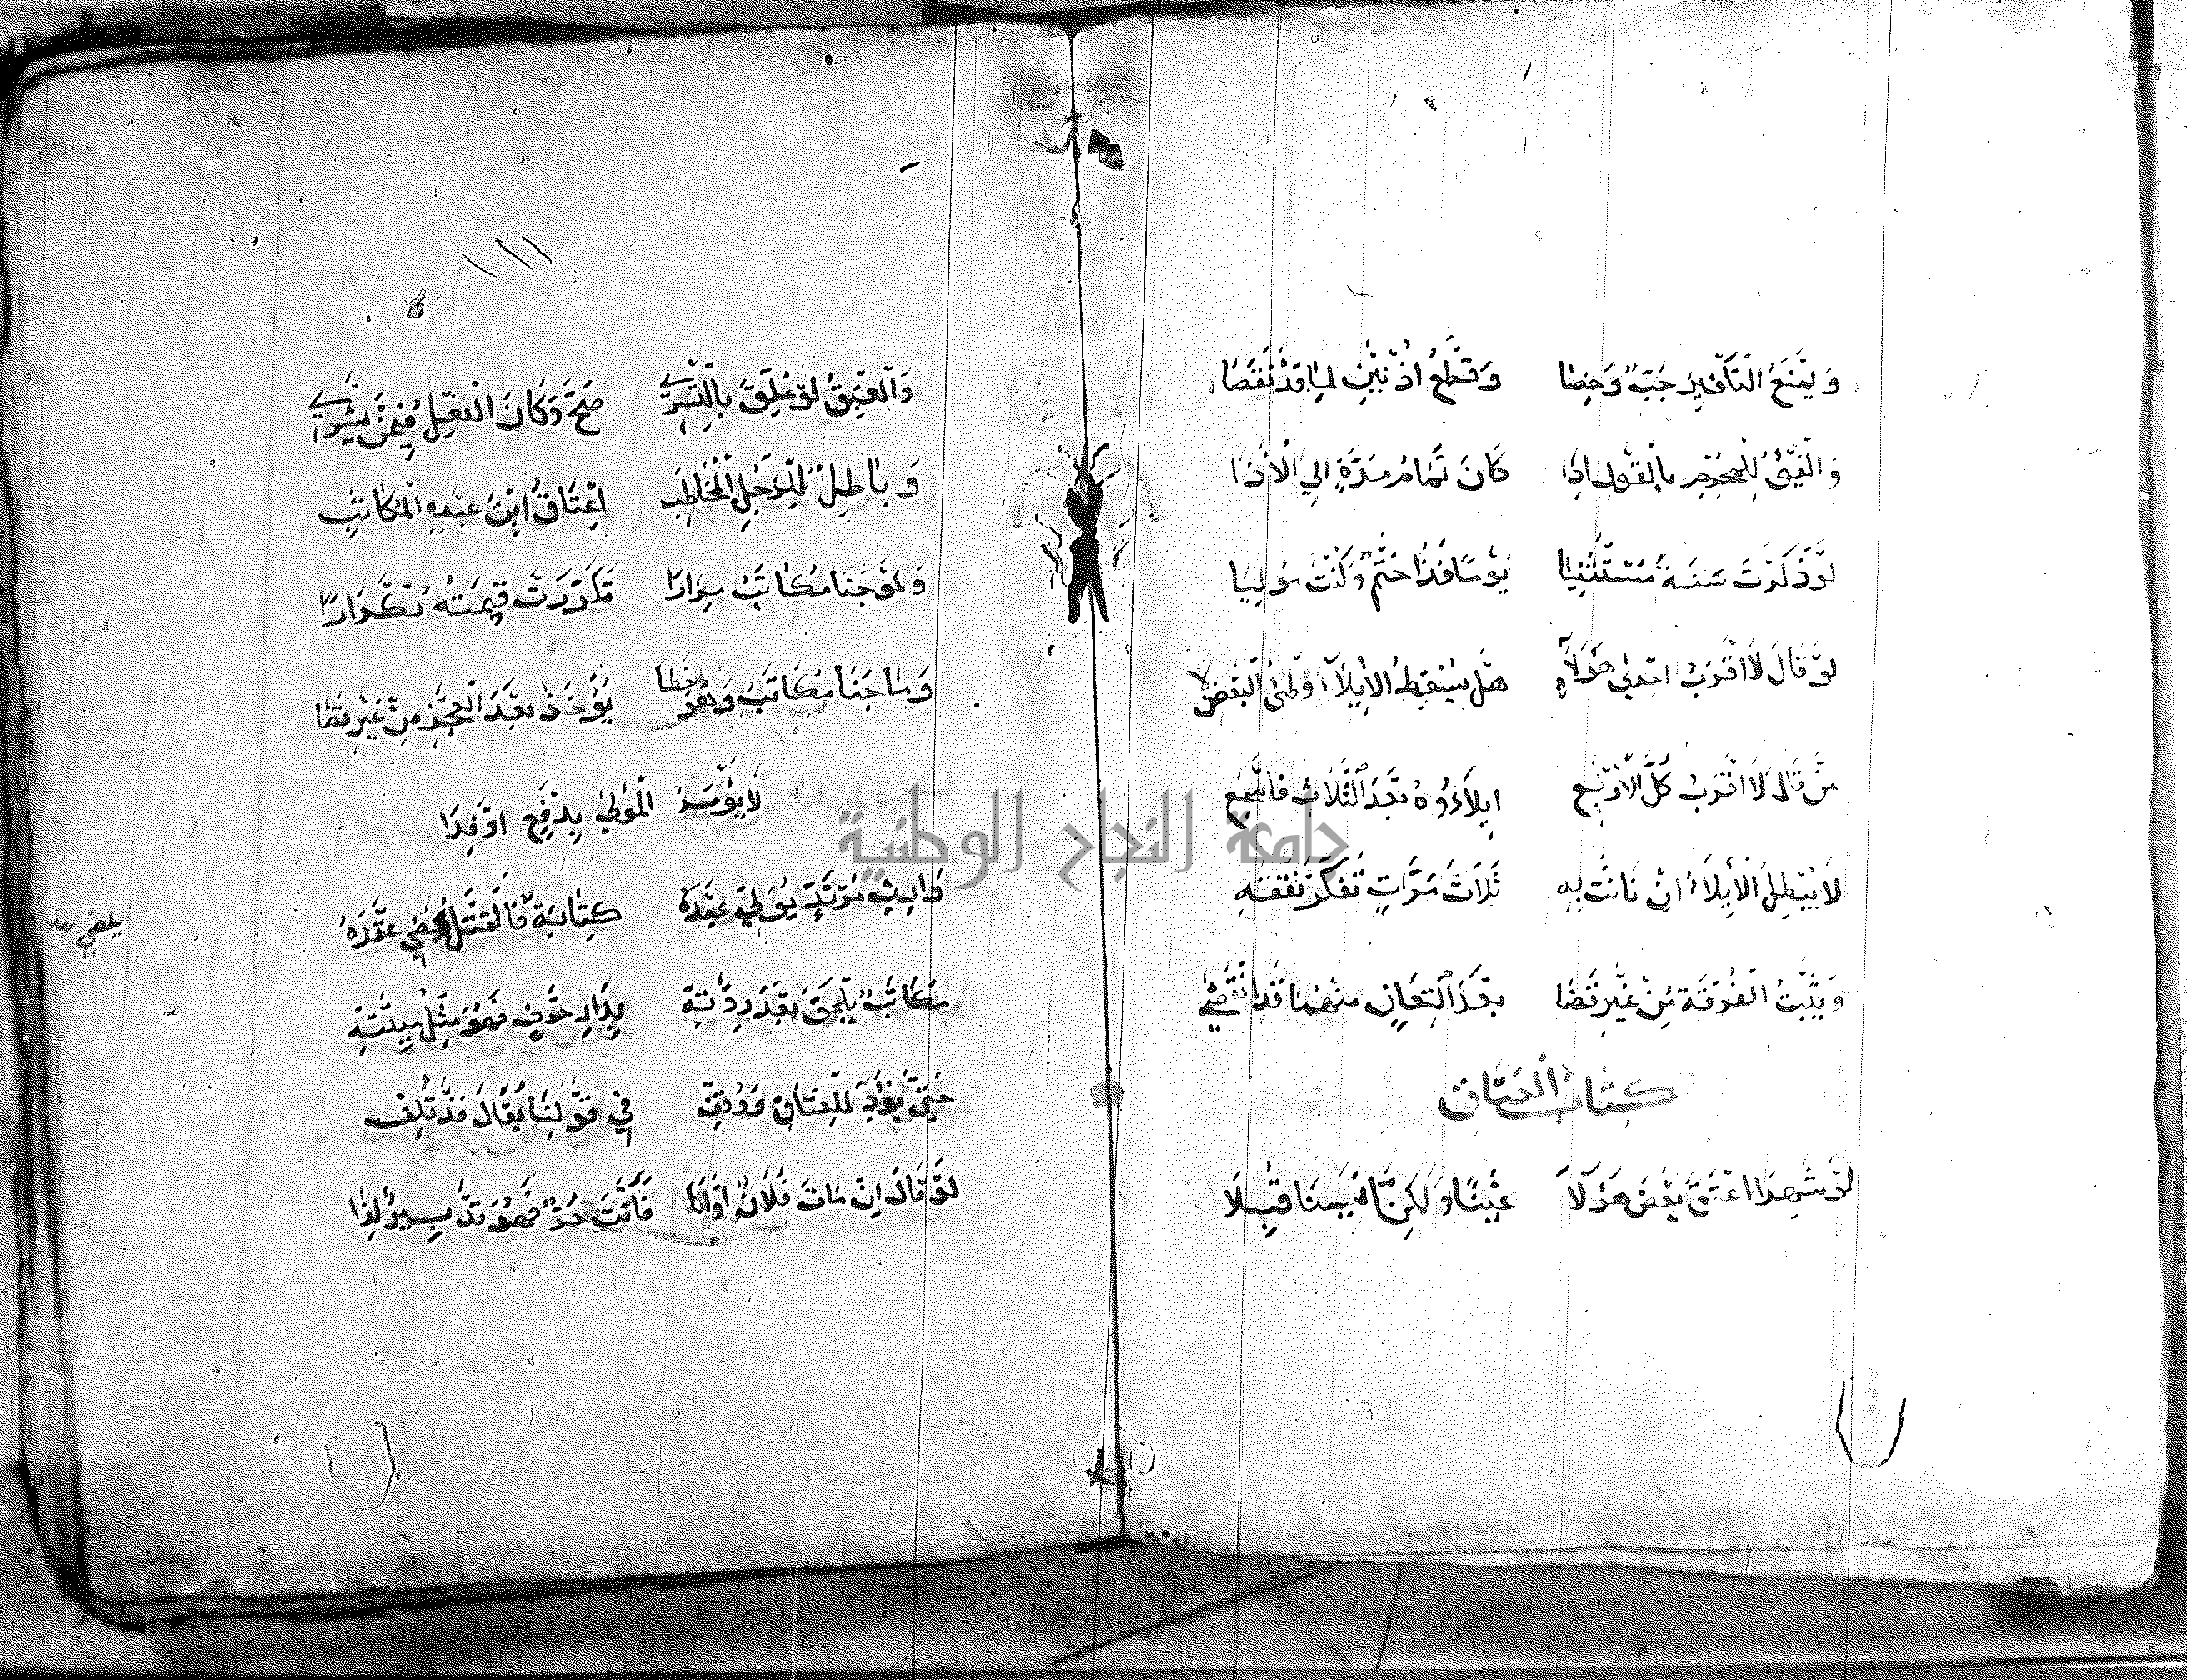 وَيَمْنَعُ التَكْفِيرَ جَبٌّ وَخِصَا وَقَطْعُ اُذْنَيْنِ لِمَا قَدْ نَقَصَا
وَالْفَيْئُ لِلْمُحْرِمِ بِالْقَوْلِ اِذَا كَانَ تَمَامُ مُدَّةٍ اِلَي الْأَذَا
لَوْ ذَكَرَتْ سَنَةً مُسْتَثْنِيَا يَوْمًا فَذَا حَتْمٌ وَكُنْتَ مُولِيَا
لَوْ قَالَ لَا اَقْرَبُ اِحْدَي هَؤُلَاءِ هَلْ يُسْقِطُ الْاِيلَاءَ وَطْئُ الْبَعْضِ لَا
مَنْ قَالَ لَا اَقْرَبُ كُلَّ الْاَرْبَعِ اِيلَاءُهُ بَعْدَ الثَّلَاثِ فَاسْمَعِ
لَا يَبْطُلُ الْاِيلَاءُ اِنْ بَانَتْ بِهِ ثَلَاثَ مَرَّاتٍ تَفَكَّرْ تَفْقَهِ
وَيَثْبُتُ الْفُرْقَةُ مِنْ غَيْرِ قَضَا بَعْدَ الْتِعَانٍ مِنْهُمَا قَدِ انْقَضَي
كِتَابُ الْعَتَاقِ
لَوْ شَهِدَا اَعْتَقَ بَعْضَ هَؤُلَا عَيْنًا وَلَكِنَّا نَسِينَا قُبِلَا
١١١
وَالْعِتْقُ لَوْ عُلِّقَ بِالتَّسَرِّي صَحَّ وَكَانَ الْفِعْلُ فِيمَنْ يَشْرِي
وَبَاطِلٌ لِلرَّجُلِ الْمُخَاطِبِ اِعْتَاقُ اِبْنِ عَبْدِهِ الْمُكَاتَبِ
وَلَوْ جَنَا مُكَاتَبٌ مِرَارًا تَكَرَّرَتْ قِيمَتُهُ تَكْرَارًا
وَمَا جَنَا مُكَاتَبٌ وَهُوَ خَطَا يُؤْخَذُ بَعْدَ الْعَجْزِ مِنْ غَيْرِ
لَا يُؤْمَرُ الْمَوْلَي بِدَفْعٍ اَوْ فِدَا
وَابْنُ مُرْتَدٍّ يُوَلِّي عَبْدَهُ كِتَابَةً فَالْقَتْلُ يُمْضِي عَقْدَهُ
يمضي
مُكَاتَبٌ يَلْحَقُ بَعْدَ رِدَّتِهْ بِدَارِ حَرْبٍ فَهْوَ مِثْلُ مِيتَتِهْ
حَتَّي يُؤَدِّي لِلْعَتَاقِ فِي قَوْلِنَا يُقَالُ قَدْ تَلِفْ
لَوْ قَالَ اِنْ مَاتَ فُلَانٌ اَوْ اَنَا فَاَنْتَ حُرٌّ فَهْوَ تَدْبِيرٌ لَنَا
جامعة النجاح الوطنية